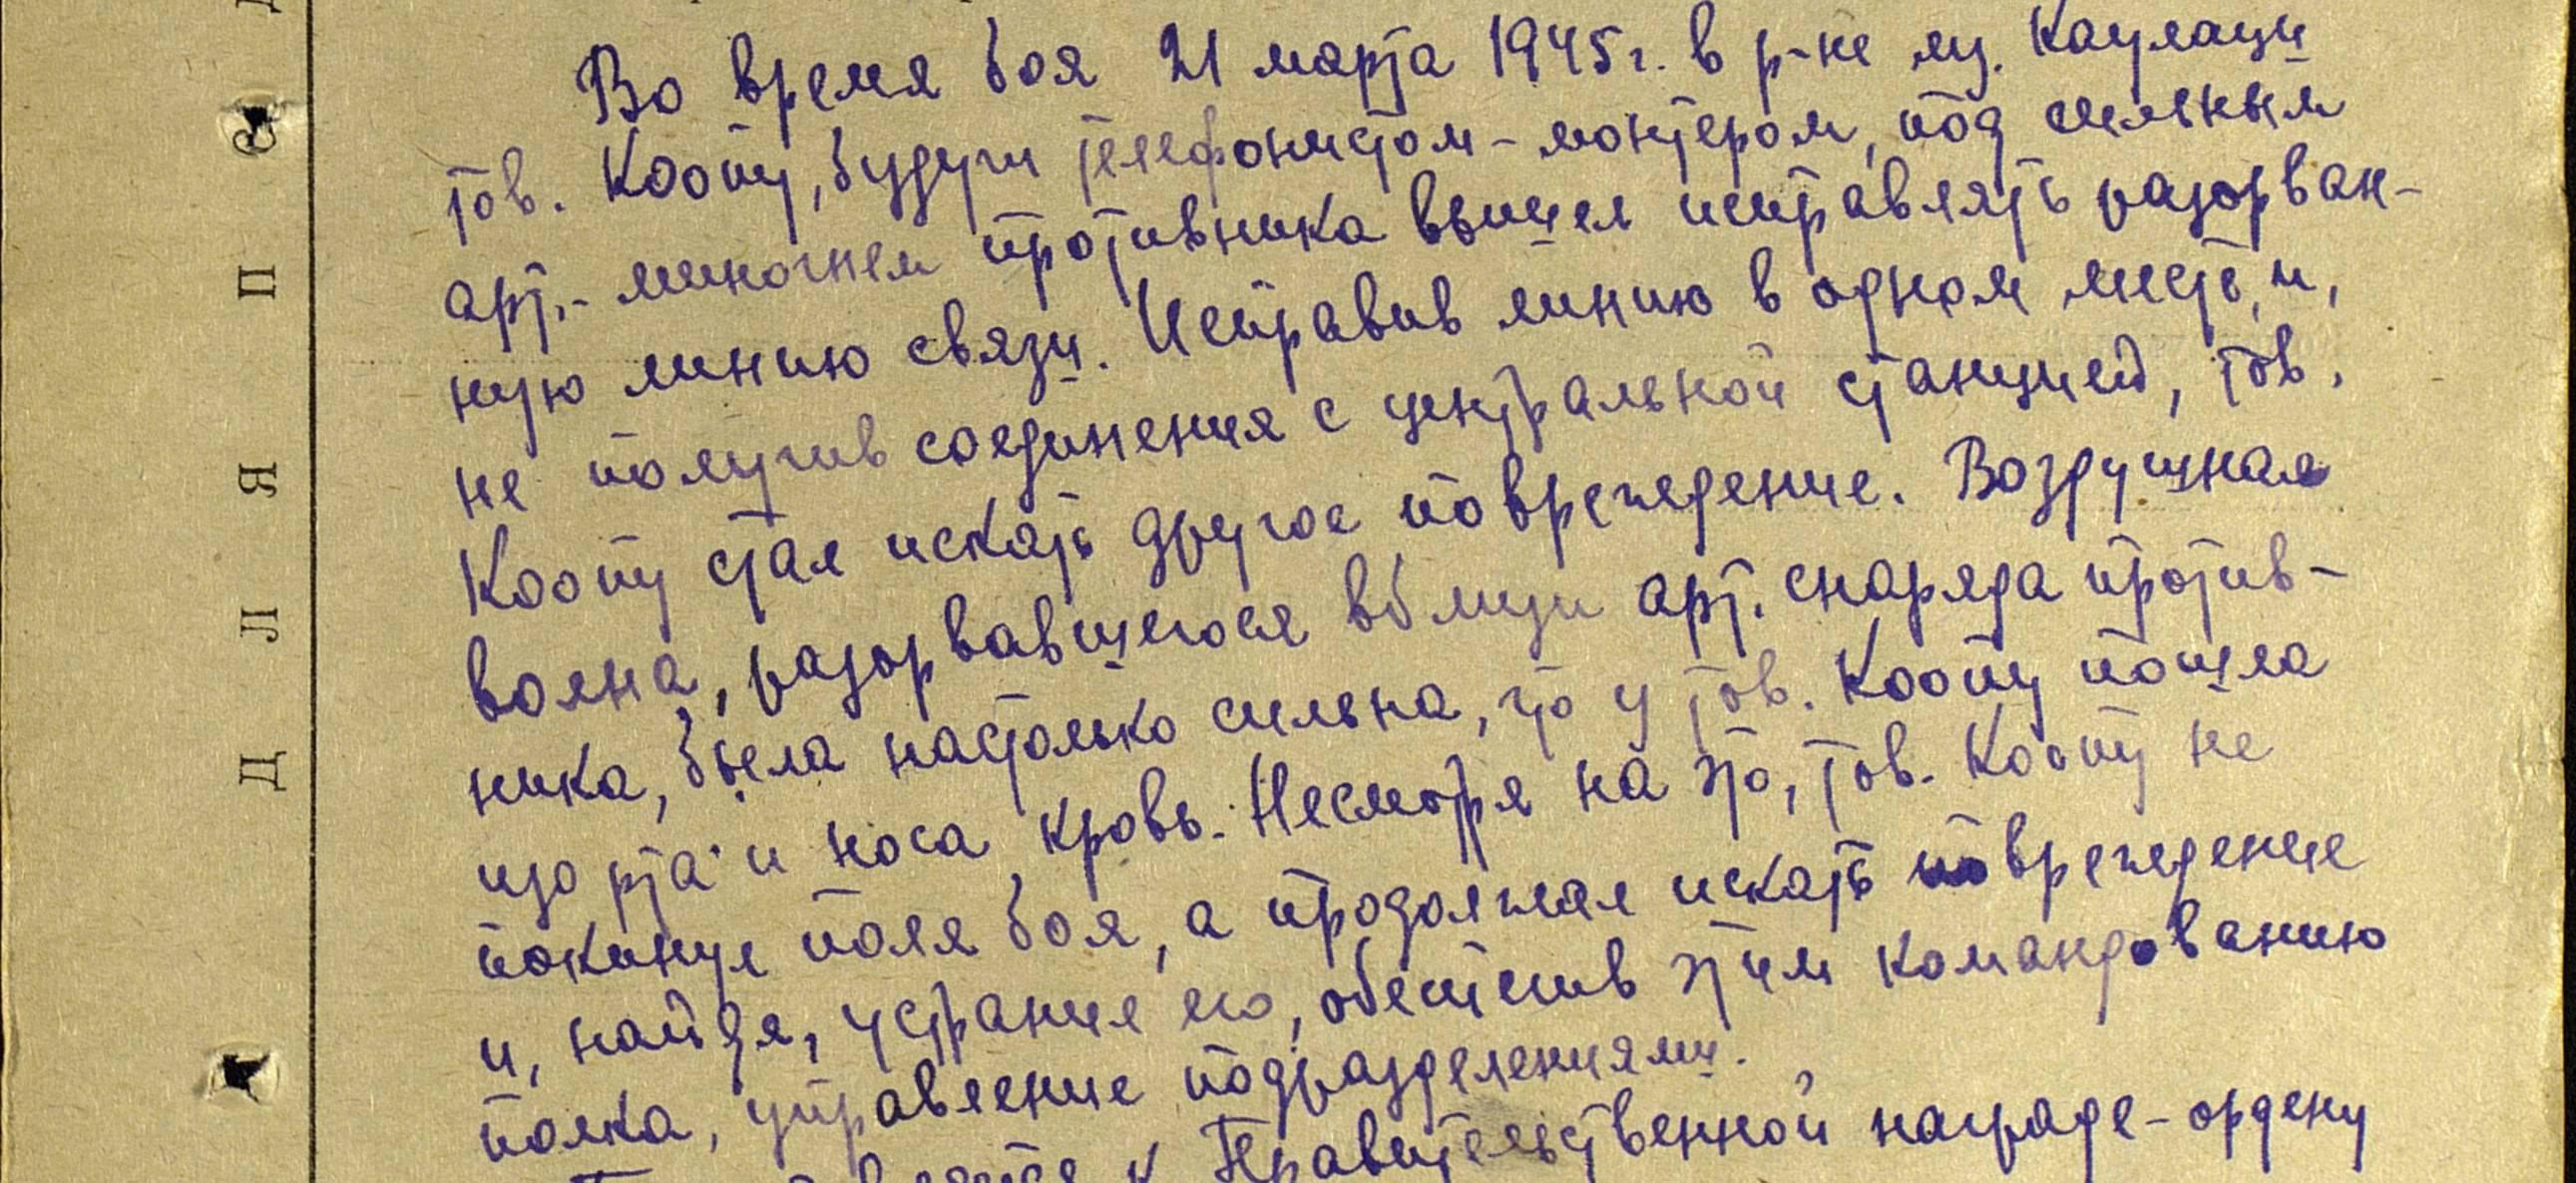 Во время боя 21 марта 1945 г. в р-не мз. Каулаци
тов. Коопу, будучи телефонистом-монтером, под сильным
арт.-миногнем противника вышел исправлять разорван-
ную линию связи. Исправив линию в одном месте, и,
не получив соединения с центральной станцией, тов.
Коопу стал искать другое повреждение. Воздушная
волна, разорвавшегося вблизи арт. снаряда против-
ника, была настолько сильна, что у тов. Коопу пошла
изо рта и носа кровь. Несмотря на это, тов. Коопу не
покинул поля боя, а продолжал искать повреждение
и, найдя, устранил его, обеспечив этим командованию
полка, управление подразделениями.
к Правительственной награде - ордену
ДЛЯ ПОС